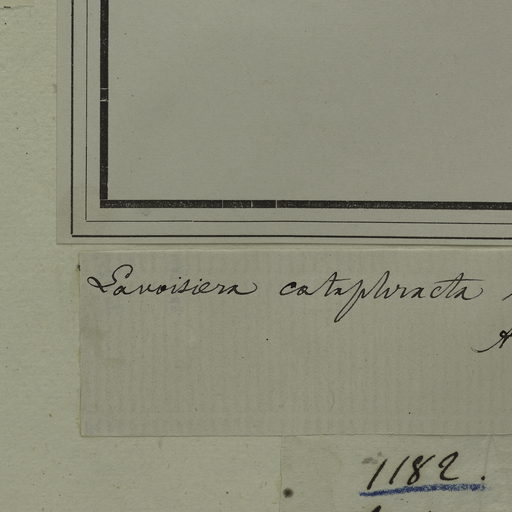 Lavoisiera cataphracta
A
1182.